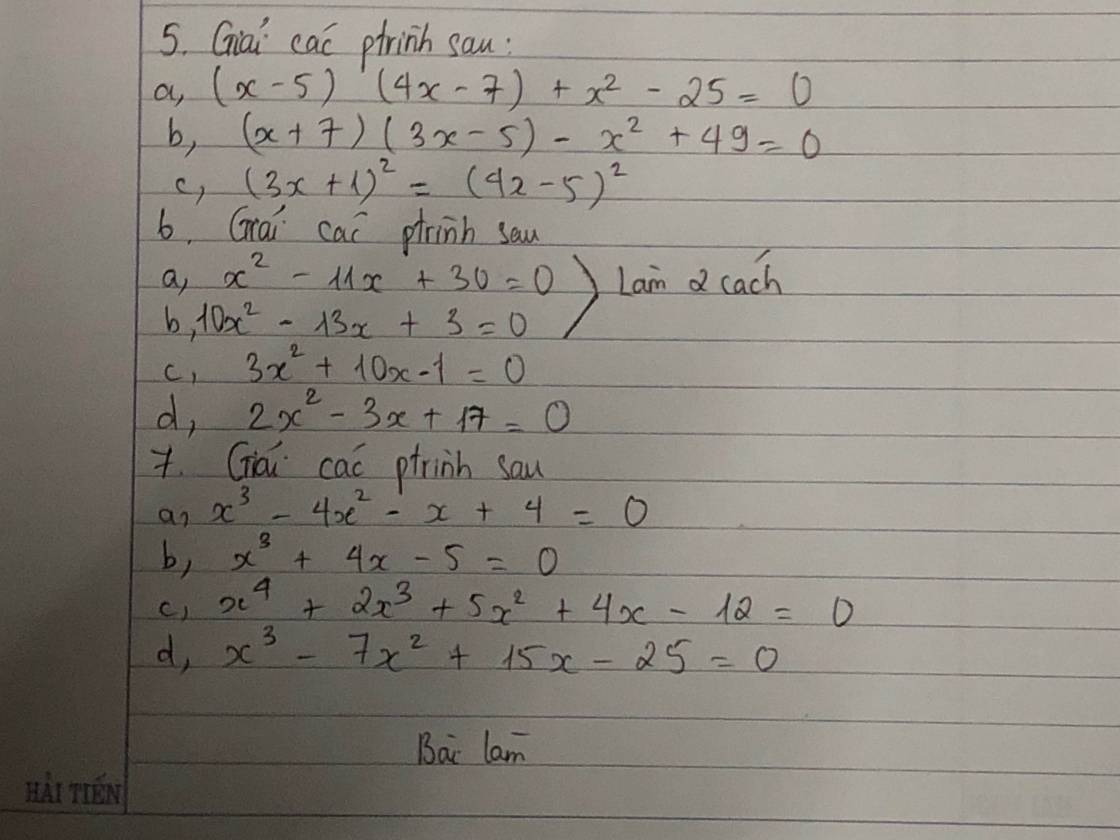 5. Giải các ptrình sau:
a, (x - 5) (4x - 7) + x² - 25 = 0
b, (x + 7) (3x - 5) - x² + 49 = 0
c, (3x + 1)² = (4x - 5)²
6. Giải các ptrình sau
a, x² - 11x + 30 = 0 } Làm 2 cách
b, 10x² - 13x + 3 = 0
c, 3x² + 10x - 1 = 0
d, 2x² - 3x + 17 = 0
7. Giải các ptrình sau
a, x³ - 4x² - x + 4 = 0
b, x³ + 4x - 5 = 0
c, x⁴ + 2x³ + 5x² + 4x - 12 = 0
d, x³ - 7x² + 15x - 25 = 0
Bài làm
HẢI TIẾN